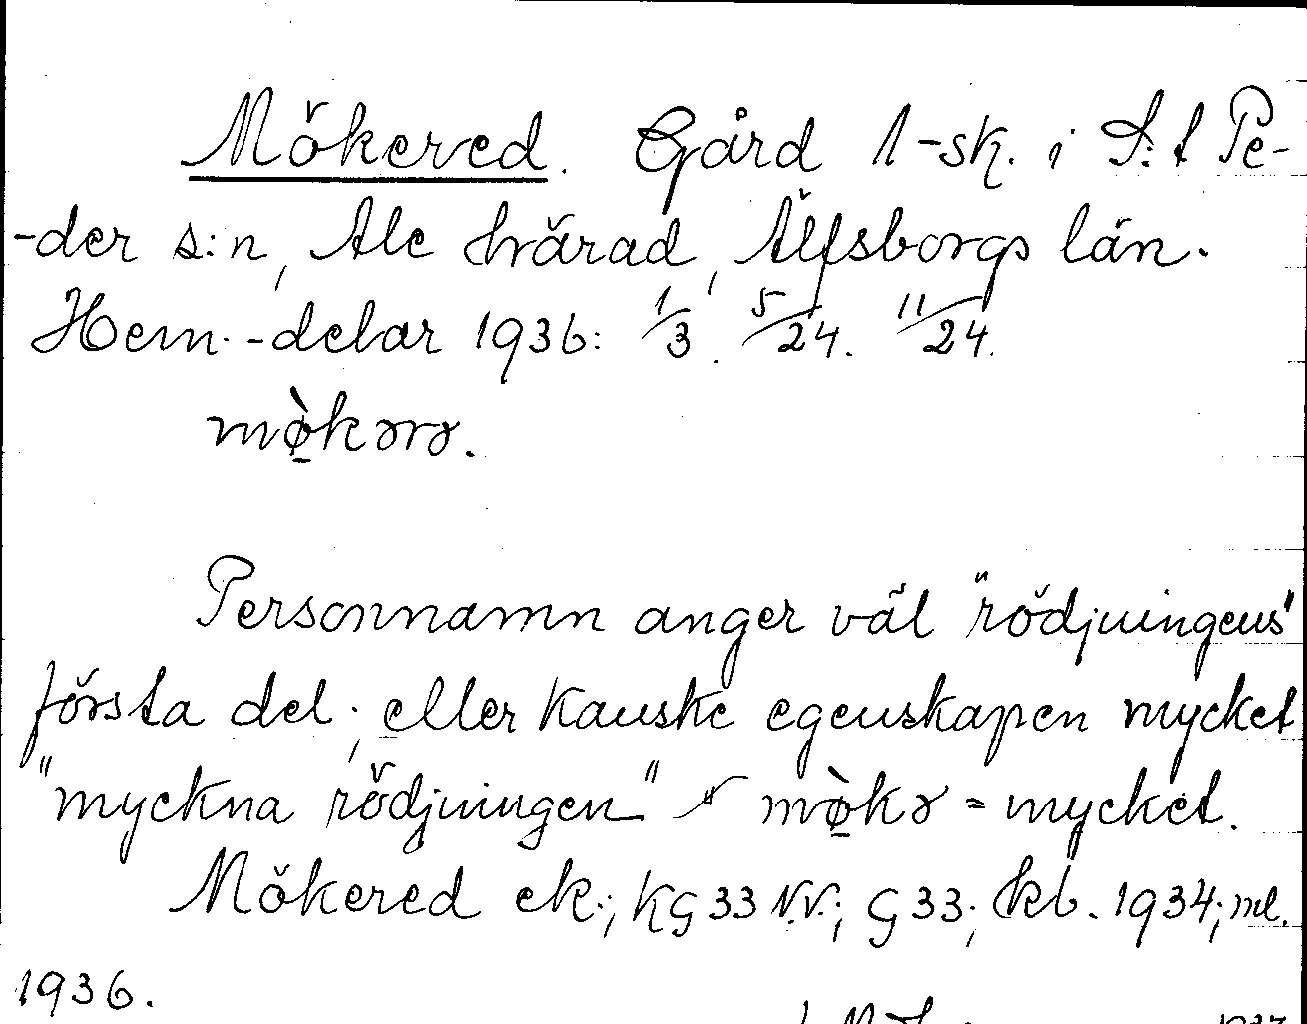 Mökered. Gård 1-sk. i S:t Pe-
-der s:n, Ale härad, Älfsborgs län.
Hem.-delar 1936: 1/3. 5/24. 11/24.
mø̱̀kərə.
Personnamn anger väl "rödjningens"
första del; eller kanske egenskapen mycket
"myckna rödjningen" mø̱̀kə = mycket.
Mökered ek.; KG33 N.V.; G33; kb. 1934; ml.
1936.